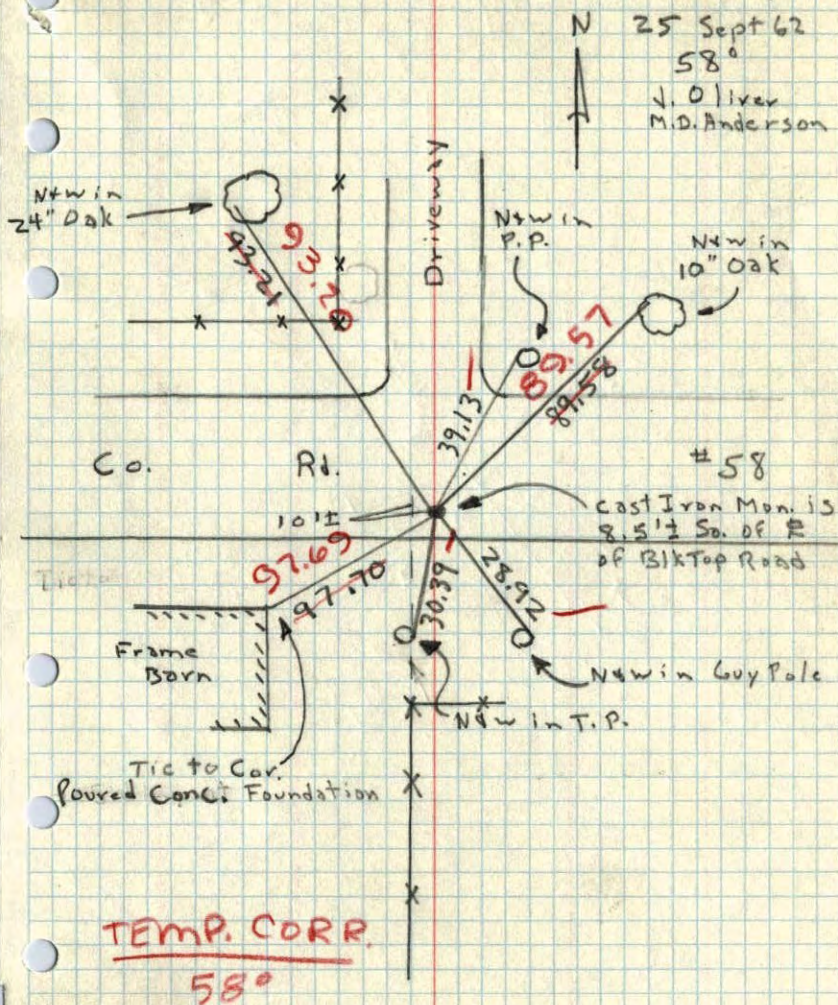 N
25 Sept 62
58°
J. Oliver
M.D. Anderson
N&W in
24" Oak
93.21
93.20
Driveway
N&W in
P.P.
N&W in
10" Oak
89.57
89.58
39.13
Co. Rd. #58
10'±
Cast Iron Mon. is
8.5'± So. of ℄
of BlkTop Road
97.69
97.70
30.39
28.92
Frame
Barn
N&W in Guy Pole
N&W in T.P.
Tie to Cor.
Poured Conc. Foundation
TEMP. CORR.
58°